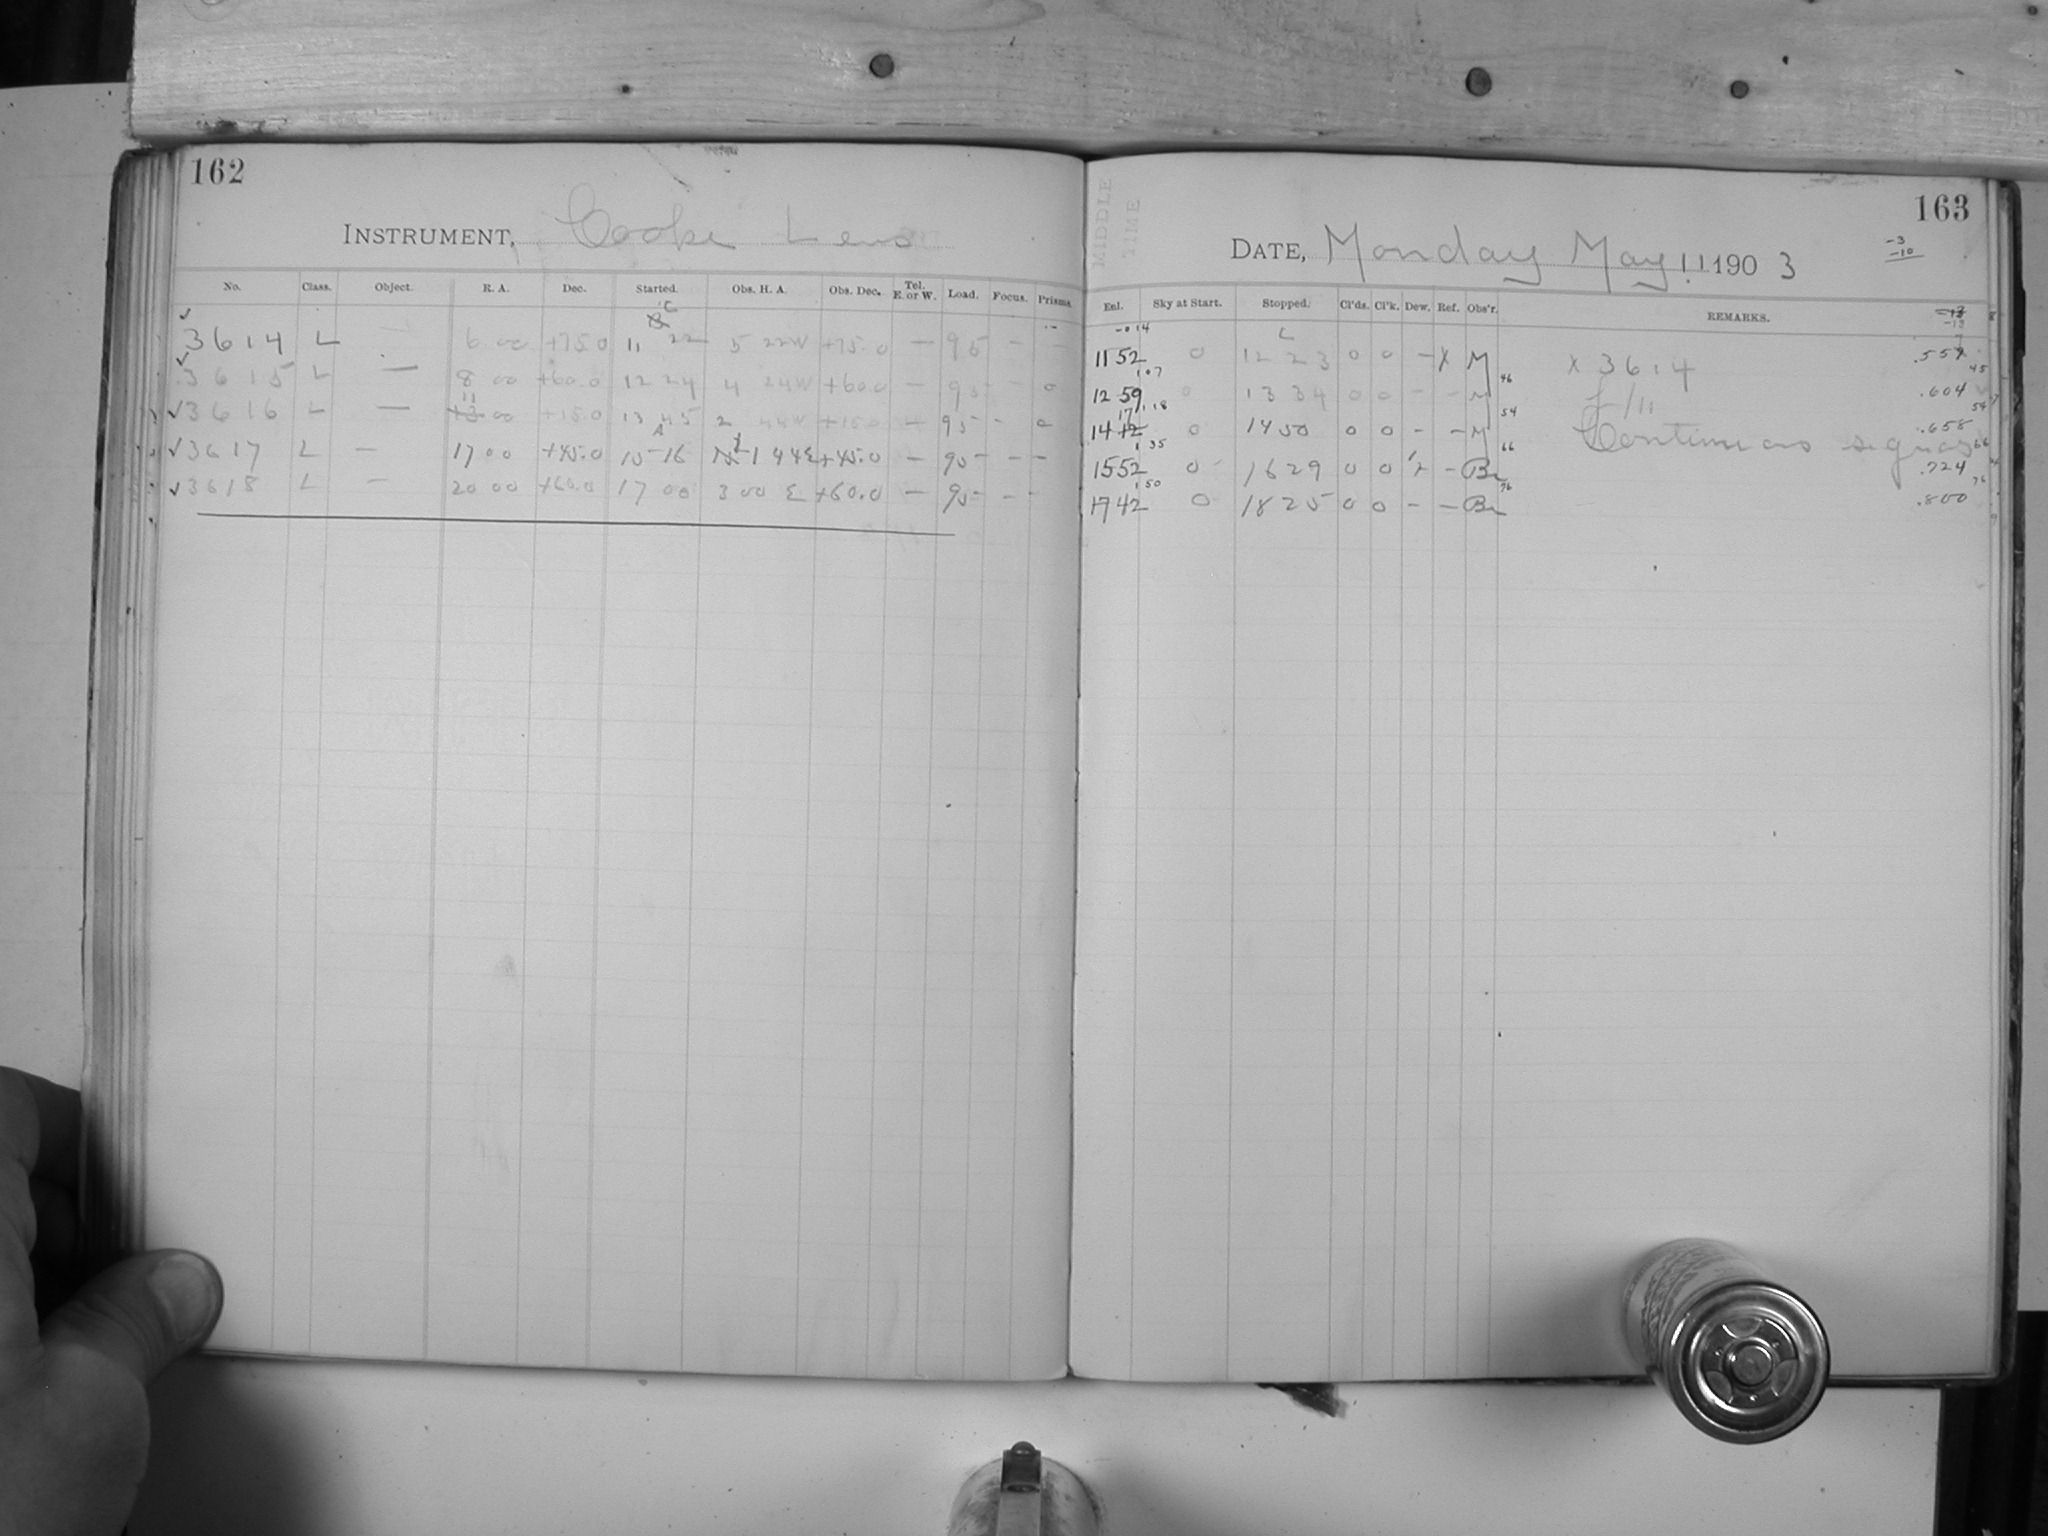 162
INSTRUMENT, Cooke Lens
No. Class. Object. R. A. Dec. Started. Obs. H. A. Obs. Dec. Tel. E. or W. Load. Focus. Prisms.
✓ 3614 L — 6 00 +75.0 11 22 5 22W +75.0 — 95 — —
✓ 3615 L — 8 00 +60.0 12 24 4 24W +60.0 — 95 - 0
✓ 3616 L — 11 00 +15.0 13 45 2 44W +15.0 — 95 - 0
✓ 3617 L — 17 00 +45.0 15 16 1 44E +45.0 — 95 — —
✓ 3618 L — 20 00 +60.0 17 00 3 00 E +60.0 — 95 - -
163
MIDDLE
TIME
DATE, Monday May 11 1903
-3
-10
Enl. Sky at Start. Stopped. Cl'ds. Cl'k. Dew. Ref. Obs'r. REMARKS.
-0 14
11 52 0 12 23 0 0 — X M x 3614 .557
1 07 46 45
12 59 0 13 34 0 0 - - M f/11 .604
1 18 54 54
14 17 0 14 50 0 0 - - M Continuous signals .658
1 35 66 66
15 52 0 16 29 0 0 - Br .724
1 50 76 76
17 42 0 18 25 0 0 - - Br .800